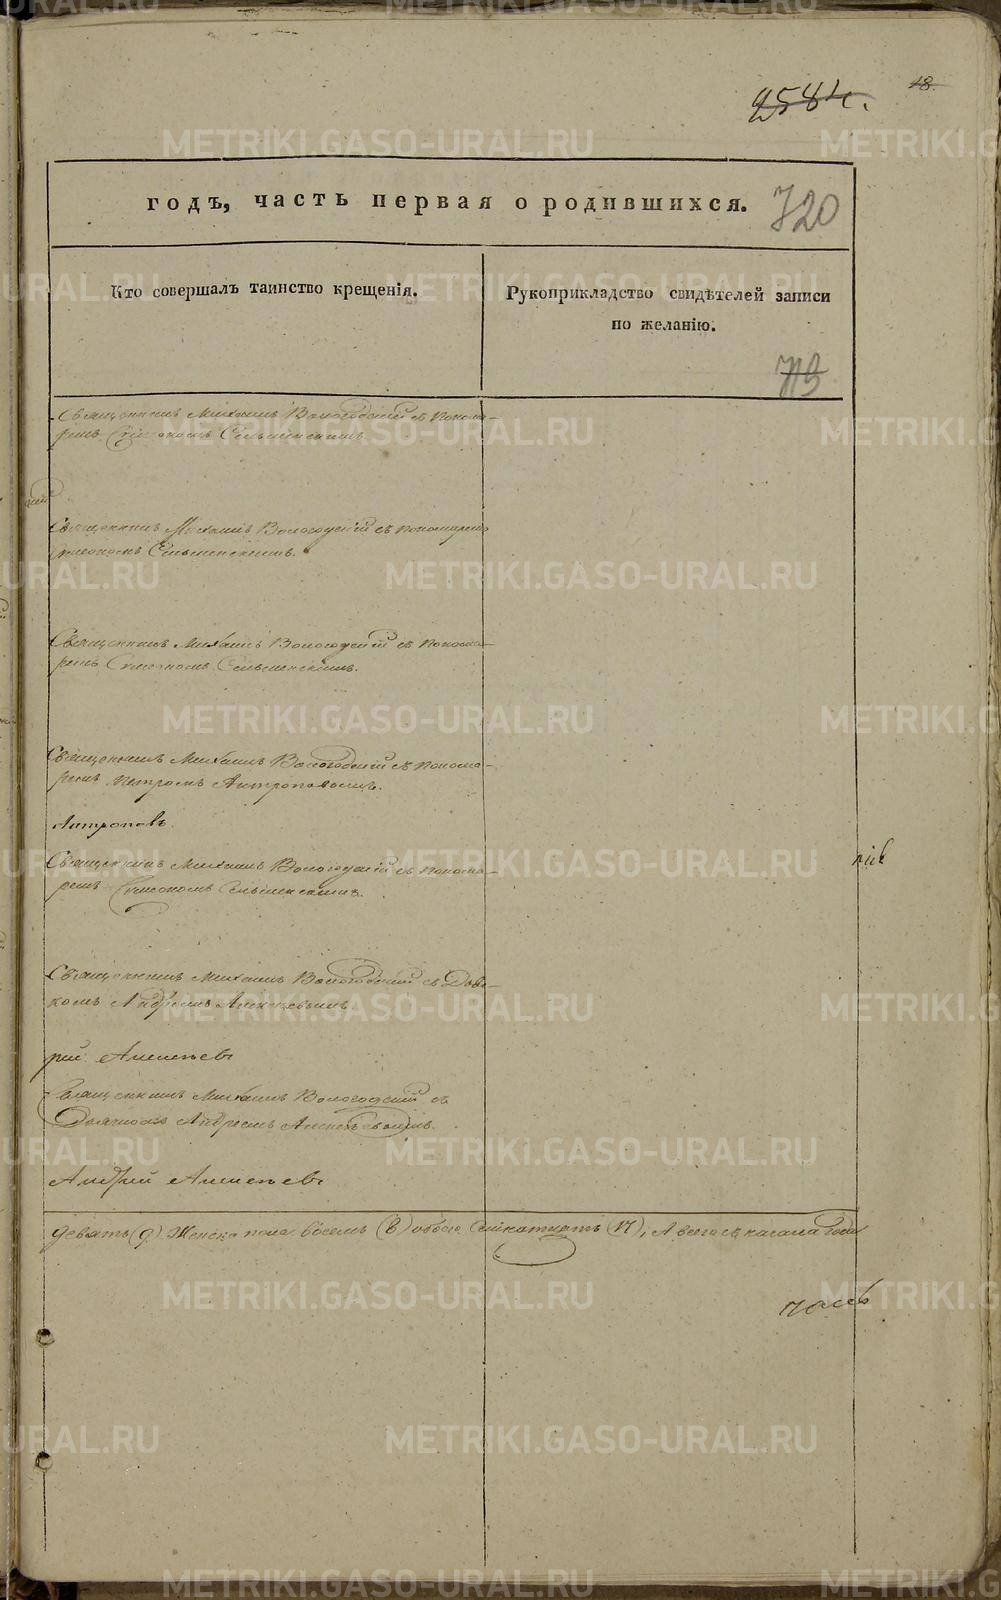 18.
2584.
годъ, часть первая о родившихся.
720
Кто совершалъ таинство крещенія.
Рукоприкладство свидѣтелей записи
по желанію.
713
Священникъ Михаилъ Вологодскій съ Понома-
ремъ Симеономъ Сельменскимъ.
Священникъ Михаилъ Вологодскій съ Пономаремъ
Симеономъ Сельменскимъ.
Священникъ Михаилъ Вологодскій съ Понома-
ремъ Симеономъ Сельменскимъ.
Священникъ Михаилъ Вологодскій съ Понома-
ремъ Петромъ Антроповымъ.
Антроповъ.
Священникъ Михаилъ Вологодскій съ Понома-
ремъ Симеономъ Сельменскимъ.
Священникъ Михаилъ Вологодскій съ Дьяч-
комъ Андреемъ Алексѣевымъ
рей Алексѣевъ
Священникъ Михаилъ Вологодскій съ
Дьячкомъ Андреемъ Алексѣевымъ.
Андрей Алексѣевъ
девять (9) Женска пола восемь (8) обоего семнатцать (17), А всего съ начала года
METRIKI.GASO-URAL.RU